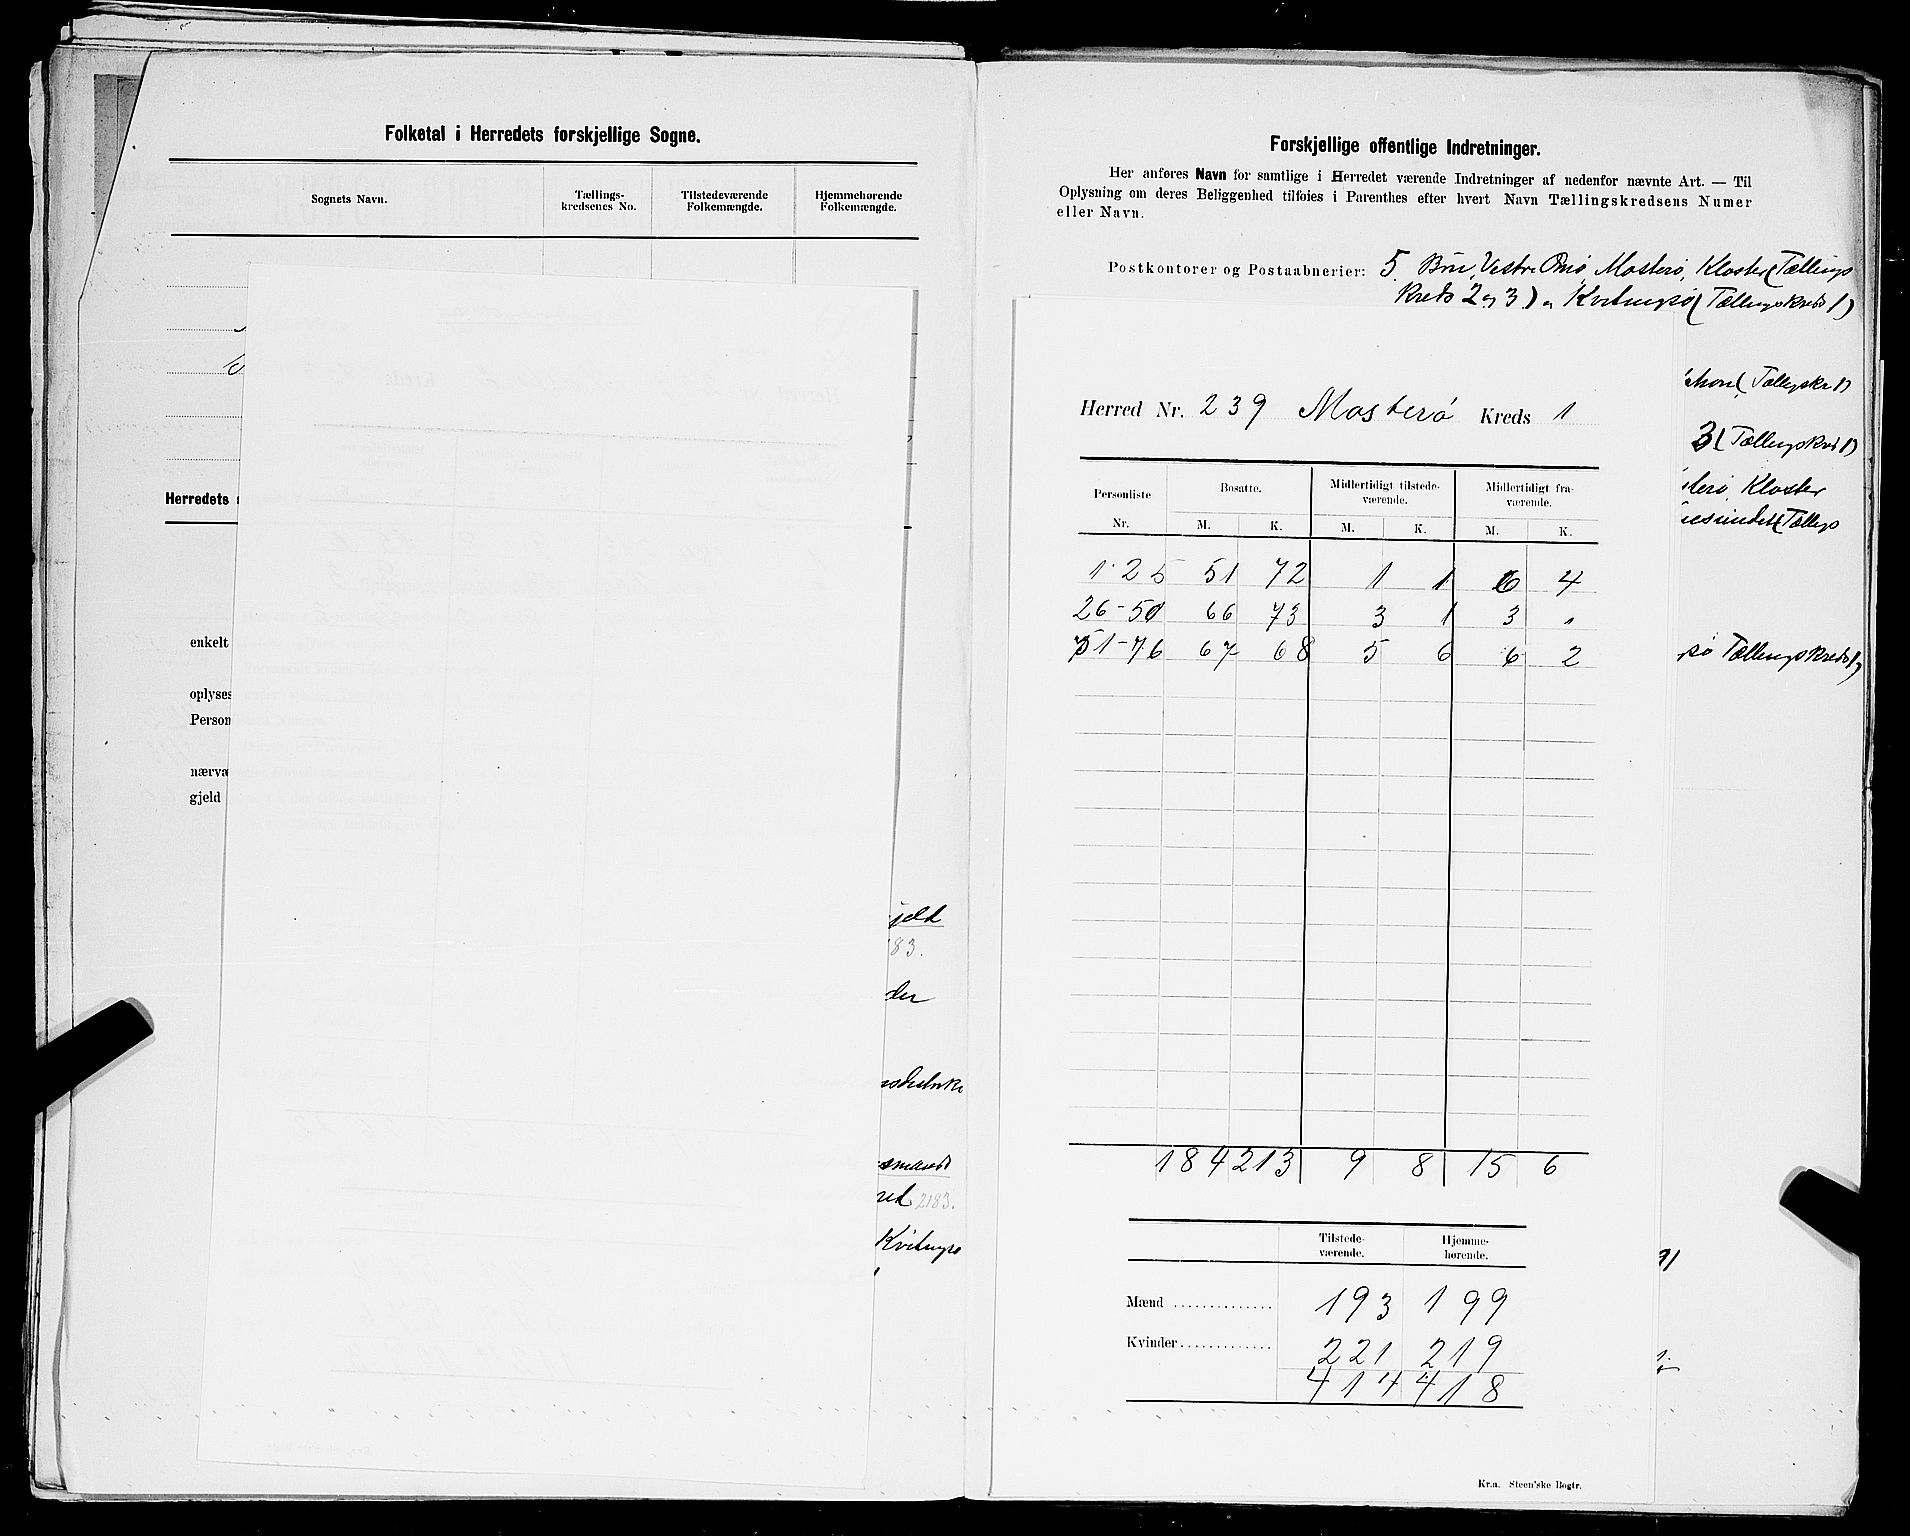 Folketal i Herredets forskjellige Sogne.
Sognets Navn. Tællings- kredsenes No. Tilstedeværende Folkemængde. Hjemmehørende Folkemængde.
Herredets
enkelt
oplyses
Person
nærvæ
gjeld
jeld
183.
der
2183.
Kvitingsø
Forskjellige offentlige Indretninger.
Her anføres Navn for samtlige i Herredet værende Indretninger af nedenfor nævnte Art. — Til
Oplysning om deres Beliggenhed tilføies i Parenthes efter hvert Navn Tællingskredsens Numer
eller Navn.
Postkontorer og Postaabnerier: 5 Bru, Vestre Omø Mosterø, Kloster (Tællings
kreds 2 og 3) og Kvitingsø (Tællingskreds 1)
(Tællingskr 1)
3 (Tællingskreds 1)
sterø Kloster
(Tællings
sø Tællingskreds 1)
Herred Nr. 239 Mosterø Kreds 1
Personliste Nr. Bosatte. Midlertidigt tilstede- værende. Midlertidigt fra- værende.
M. K. M. K. M. K.
1-25 51 72 1 1 6 4
26-50 66 73 3 1 3 "
51-76 67 68 5 6 6 2
184 213 9 8 15 6
Tilstede- værende. Hjemme- hørende.
Mænd .............. 193 199
Kvinder .............. 221 219
414 418
Kr.a. Steen'ske Bogtr.